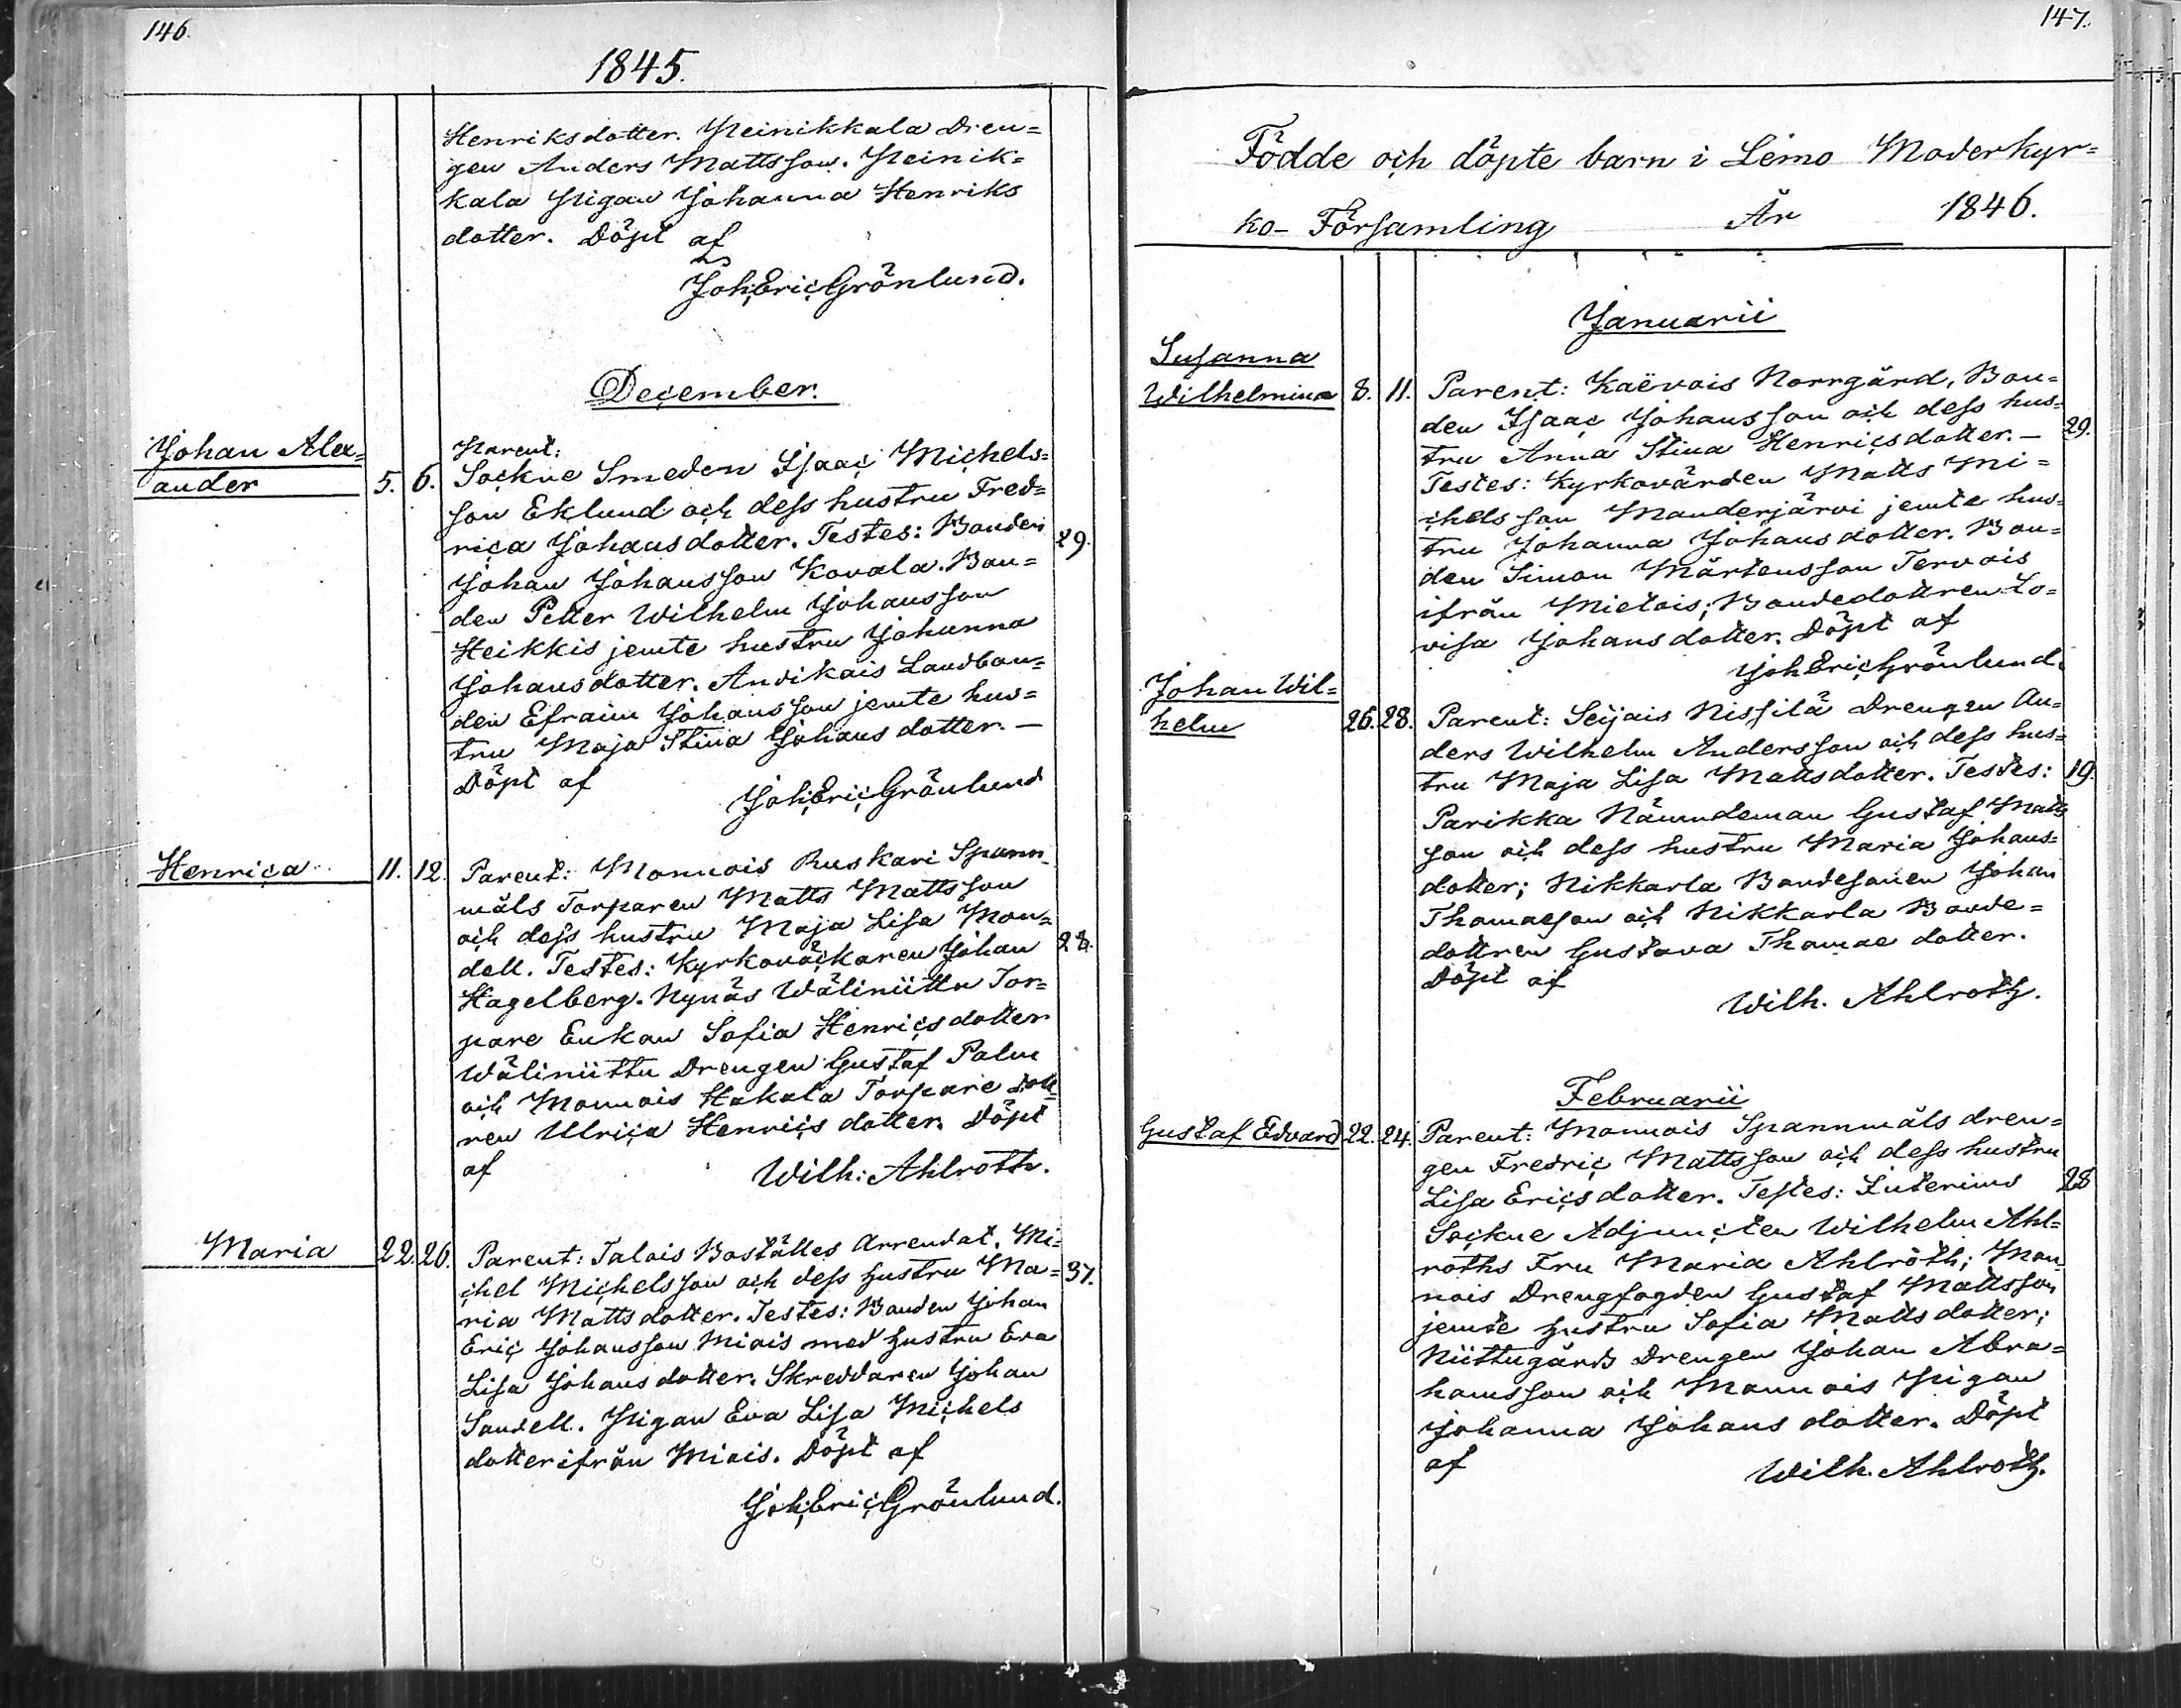 146.
1845.
Henriksdotter. Heinikkala Dren=
gen Anders Mattsson. Heinik=
kala Pigan Johanna Henriks
dotter. Döpt af
Joh: Eric Grönlund.
December.
Johan Alex=
ander 5. 6.
Parent:
Sockne Smeden Isaac Michels=
son Eklund och dess hustru Fred=
rica Johansdotter. Testes: Bonden 29.
Johan Johansson Kovala. Bon=
den Petter Wilhelm Johansson
Heikkis jemte hustru Johanna
Johansdotter. Anvikais Landbon=
den Efraim Johansson jemte hus=
tru Maja Stina Johans dotter. —
Döpt af
Joh: Eric Grönlund
Henrica 11. 12. Parent: Monnois Ruskari Spann=
måls Torparen Matts Mattsson
och dess hustru Maja Lisa Mon=
dell. Testes: Kyrkoväckaren Johan
Hagelberg. Nynäs Wäliniittu Tor=
pare Enkan Sofia Henricsdotter
Wäliniittu Drengen Gustaf Palm
och Monnois Hakala Torpare dott
ren Ulrica Henrics dotter. Döpt
af Wilh: Ahlroth.
Maria 22. 26. Parent: Talois Boställes Arrendat. Mi=
chel Michelsson och dess hustru Ma= 37.
ria Mattsdotter. Testes: Bonden Johan
Eric Johansson Miois med hustru Eva
Lisa Johans dotter. Skreddaren Johan
Sandell. Pigan Eva Lisa Michels
dotter ifrån Miois. Döpt af
Joh: Eric Grönlund.
147.
Födde och döpte barn i Lemo Moderkyr=
ko- Församling År 1846.
Januarii
Susanna
Wilhelmina 8. 11. Parent: Kaëvois Norrgård, Bon=
den Isaac Johansson och dess hus= 29.
tru Anna Stina Henricsdotter. —
Testes: Kyrkovärden Matts Mi=
chels son Manderjärvi jemte hus=
tru Johanna Johans dotter. Bon=
den Simon Mårtensson Tervois
ifrån Mietois; Bondedottren Lo=
visa Johans dotter. Döpt af
Joh: Eric Grönlund.
Johan Wil=
helm 26. 28. Parent: Seijais Nissilä Drengen An=
ders Wilhelm Andersson och dess hus=
tru Maja Lisa Mattsdotter. Testes: 19.
Parikka Nämndeman Gustaf Matts
son och dess hustru Maria Johans=
dotter; Nikkarla Bondesonen Johan
Thomaeson och Nikkarla Bonde=
dottren Gustava Thomae dotter.
Döpt af
Wilh. Ahlroth.
Februarii
Gustaf Edvard 22. 24. Parent: Monnois Spannmåls dren=
gen Fredric Mattsson och dess hustru
Lisa Ericsdotter. Testes: Luterims 28
Sockne Adjuncten Wilhelm Ahl=
roths Fru Maria Ahlroth; Mon=
nois Drengfogden Gustaf Mattsson
jemte hustru Sofia Matts dotter;
Niittugårds Drengen Johan Abra=
hamsson och Monnois Pigan
Johanna Johans dotter. Döpt
af Wilh. Ahlroth.